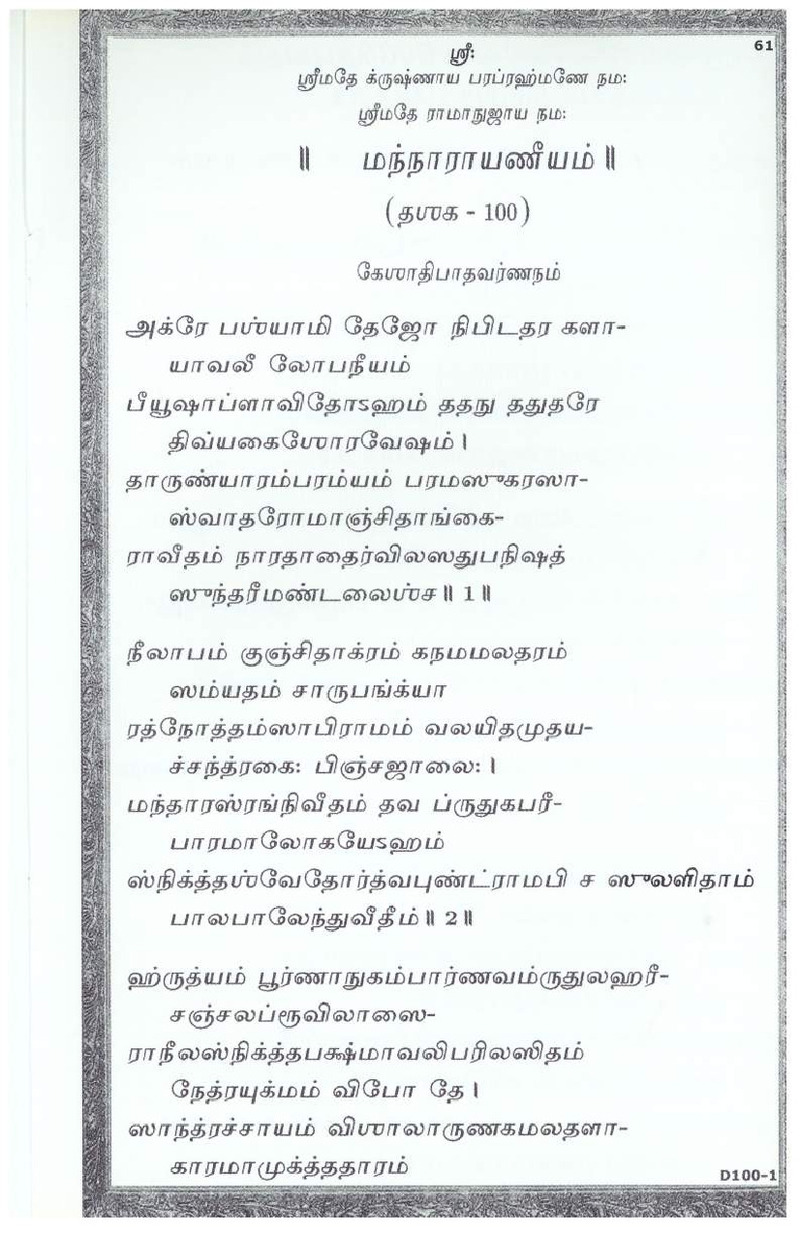 61
ஸ்ரீ:
ஸ்ரீமதே க்ருஷ்ணாய பரப்ரஹ்மணே நம:
ஸ்ரீமதே ராமாநுஜாய நம:
॥ மந்நாராயணீயம் ॥
(தஶக - 100)
கேஶாதிபாதவர்ணநம்
அக்ரே பஶ்யாமி தேஜோ நிபிடதர களா-
யாவலீ லோபநீயம்
பீயூஷாப்ளாவிதோऽஹம் ததநு ததுதரே
திவ்யகைஶோரவேஷம்।
தாருண்யாரம்பரம்யம் பரமஸுகரஸா-
ஸ்வாதரோமாஞ்சிதாங்கை-
ராவீதம் நாரதாதைர்விலஸதுபநிஷத்
ஸுந்தரீமண்டலைஶ்ச॥ 1॥
நீலாபம் குஞ்சிதாக்ரம் கநமமலதரம்
ஸம்யதம் சாருபங்க்யா
ரத்நோத்தம்ஸாபிராமம் வலயிதமுதய-
ச்சந்த்ரகை: பிஞ்சஜாலை:।
மந்தாரஸ்ரங்நிவீதம் தவ ப்ருதுகபரீ-
பாரமாலோகயேऽஹம்
ஸ்நிக்த்தஶ்வேதோர்த்வபுண்ட்ராமபி ச ஸுலளிதாம்
பாலபாலேந்துவீதீம்॥ 2॥
ஹ்ருத்யம் பூர்ணாநுகம்பார்ணவம்ருதுலஹரீ-
சஞ்சலப்ரூவிலாஸை-
ராநீலஸ்நிக்த்தபக்ஷ்மாவலிபரிலஸிதம்
நேத்ரயுக்மம் விபோ தே।
ஸாந்த்ரச்சாயம் விஶாலாருணகமலதளா-
காரமாமுக்த்ததாரம்
D100-1